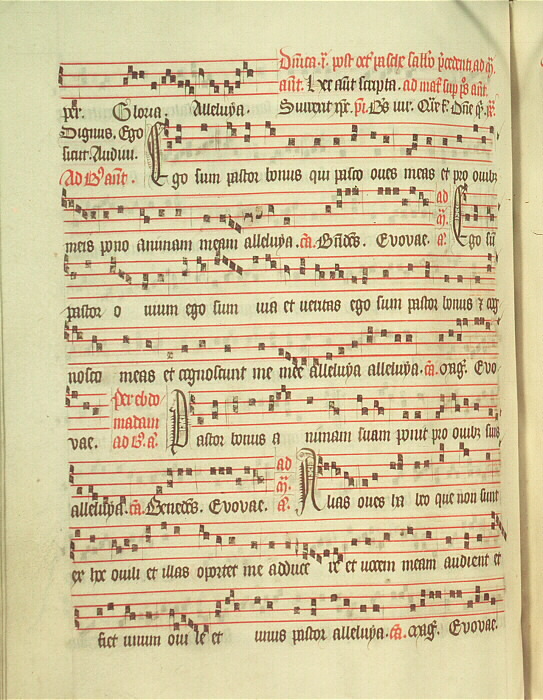 Dn̄ica .ı̄. post oct̄ pasche sabb̄o p̄cedenti ad m̄.
ant̄. Hec aut̄ scripta. ad maḡ sup̄ p̄s ant̄.
per. Gloria. Alleluya. Surrexit xp̄c.
Dignus. Ego
sicut. Audivi.
Ad B̄ ant̄.
Ego sum pastor bonus qui pasco oves meas et pro ovibz
meis pono animam meam alleluya. ca. Bn̄dc̄s. Evovae. ad m̄. a. Ego sū
pastor o vium ego sum via et veritas ego sum pastor bonus ⁊ cog
nosco meas et cognoscunt me mee alleluya alleluya. ca. maḡ. Evo
vae. Per ebdo madam ad B. a. Pastor bonus a nimam suam ponit pro ovibz suis
alleluya. ca. Benedc̄s. Evovae. ad m̄. a. Alias oves ha beo que non sunt
ex hoc ovili et illas oportet me adduce re et vocem meam audient et
fiet unum ovi le et unus pastor alleluya. ca. maḡ. Evovae.